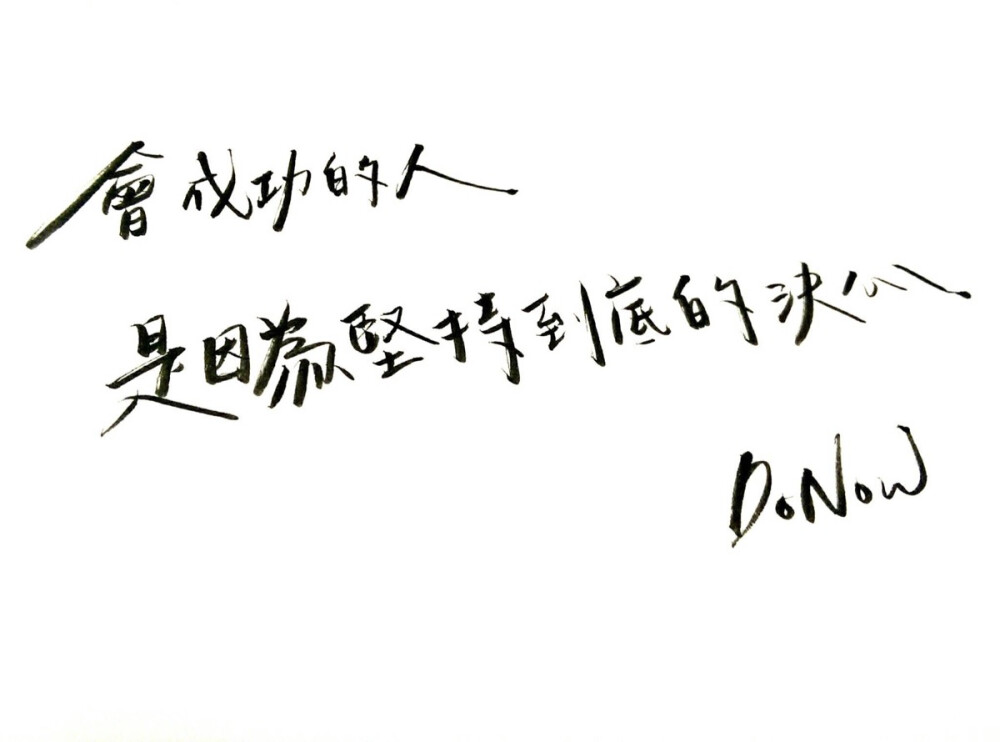 會成功的人
是因為堅持到底的決心
DoNow